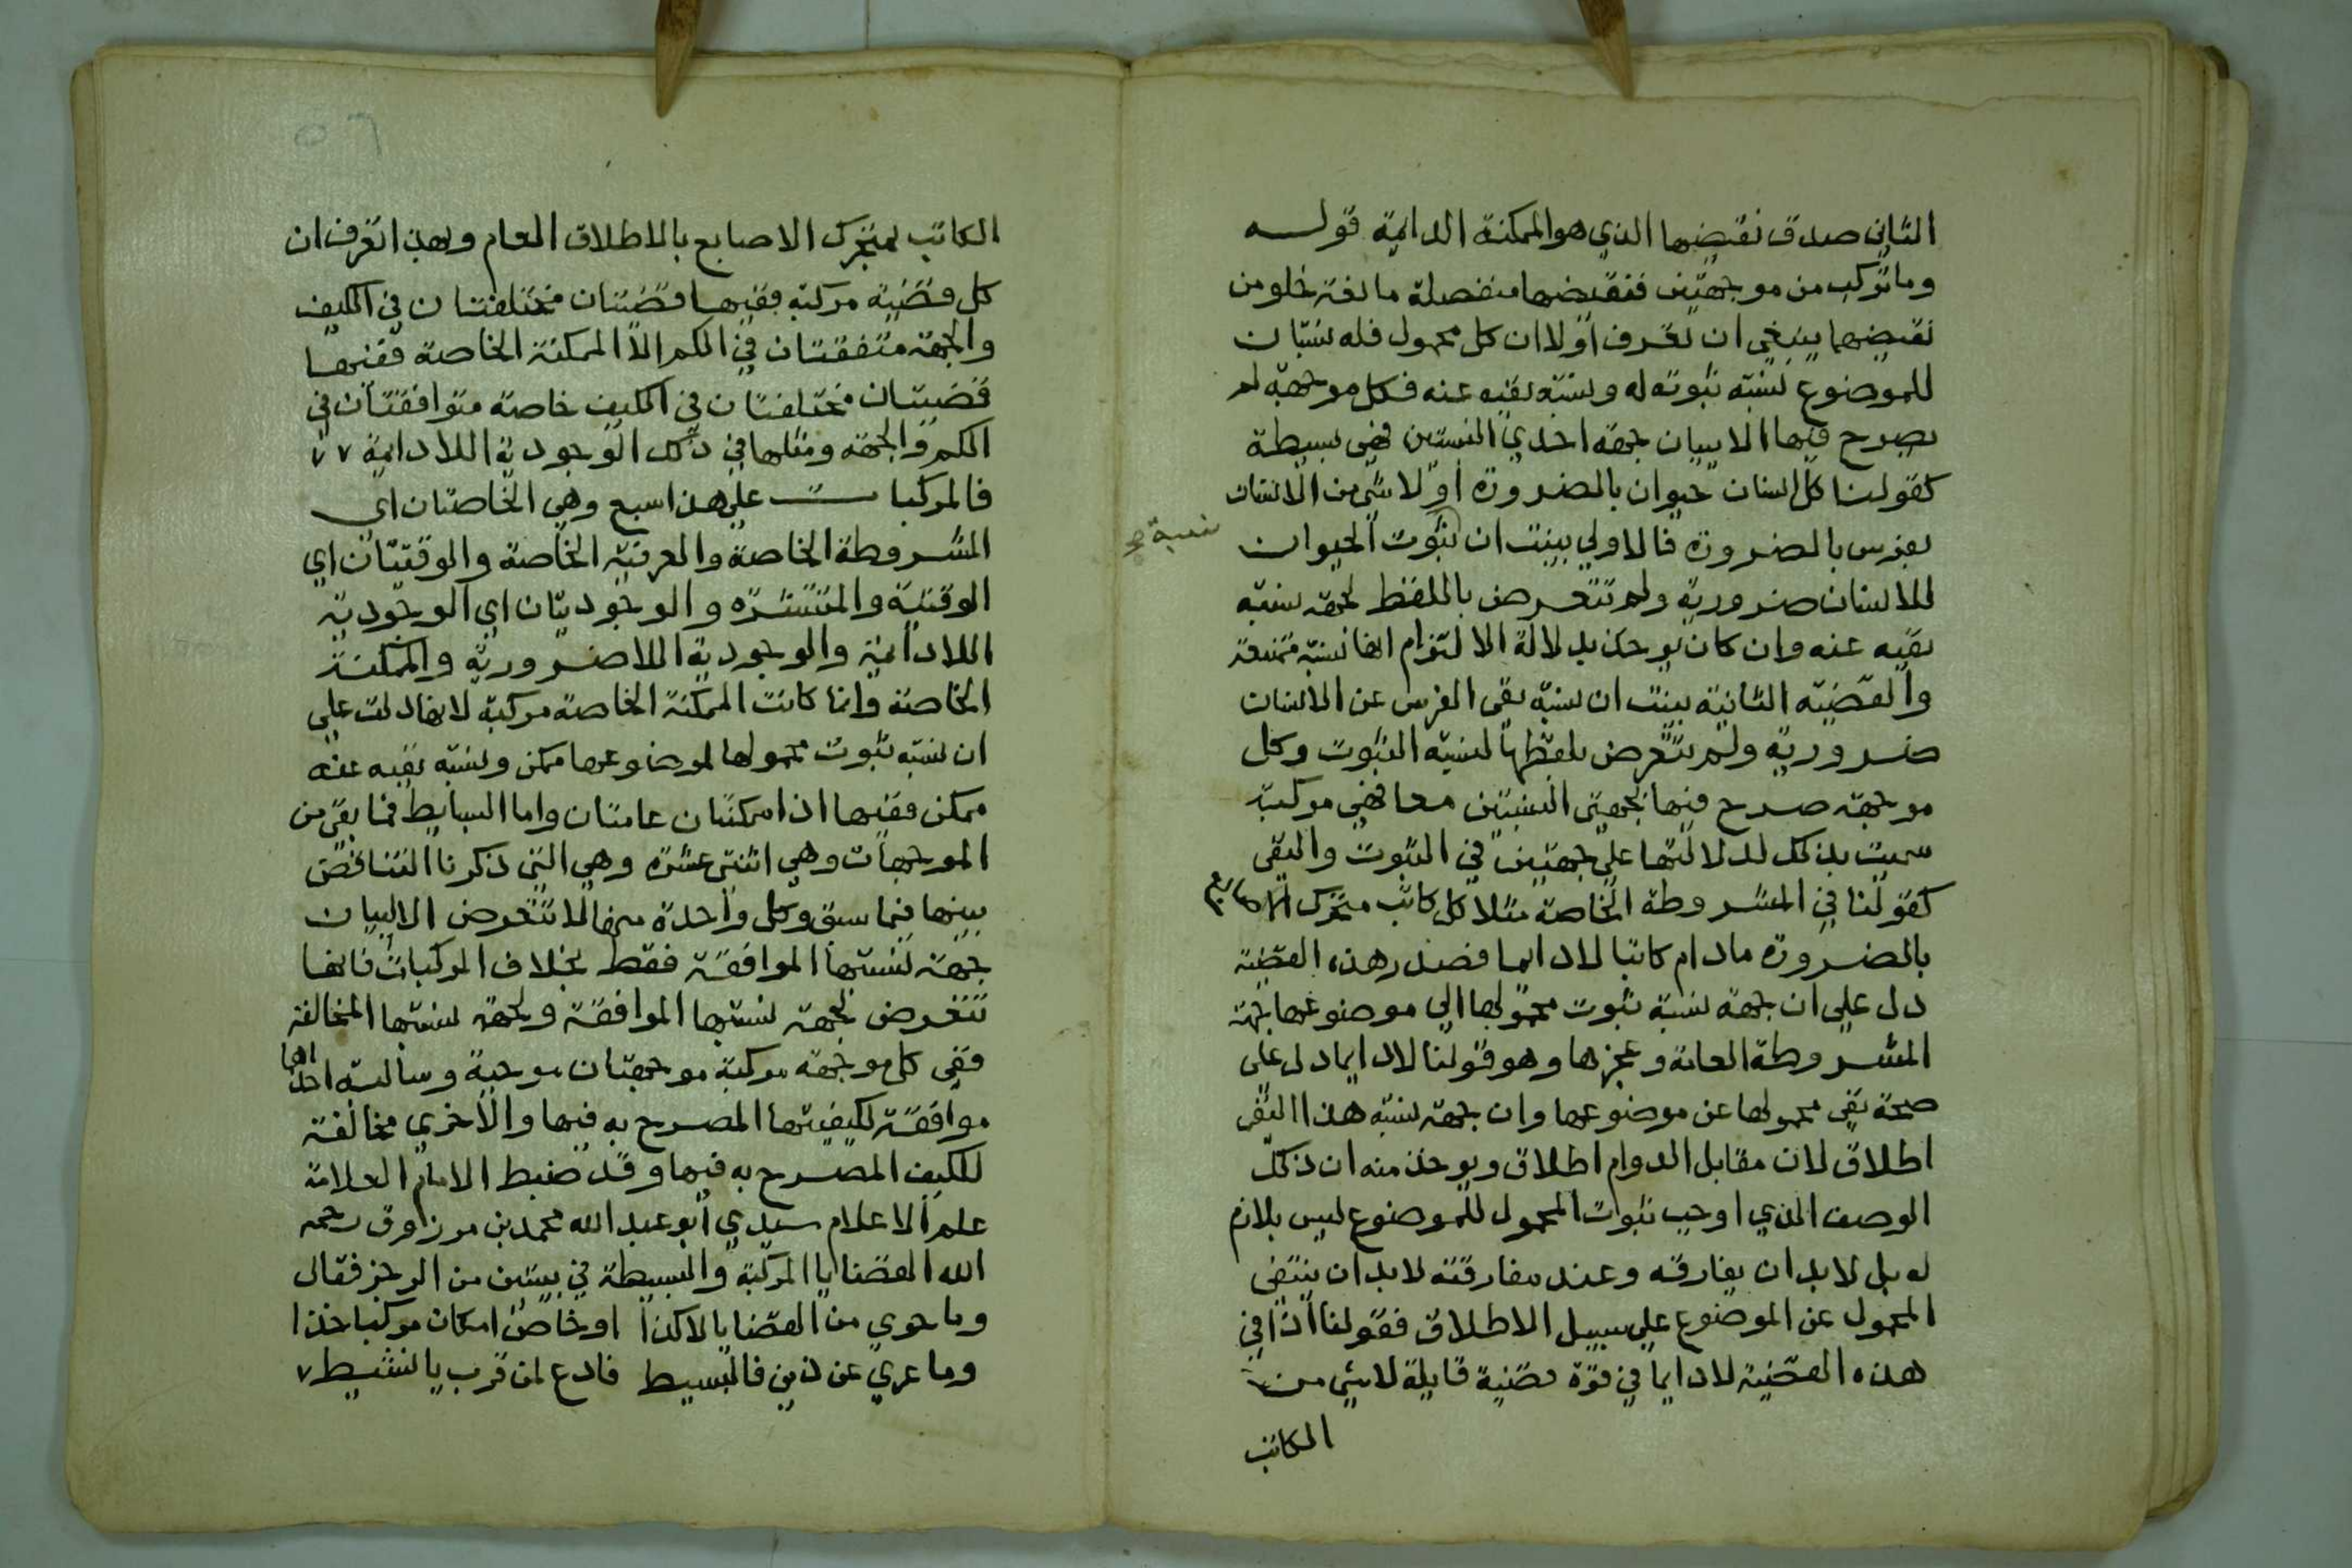 الثاني صدق نقيضها الذي هو الممكنة الدائمة قوله
وما تركب من موجهتين فنقيضها منفصلة مانعة خلو من
نقيضهما ينبغي ان تعرف اولا ان كل محمول فله نسبتان
للموضوع نسبة ثبوته له ونسبة نفيه عنه فكل موجهة لم
يصرح فيها الا ببيان جهة احدي النسبتين فهي بسيطة
كقولنا كل انسان حيوان بالضرورة او لا شي من الانسان
بفرس بالضرورة فالاولي بينت ان ثبوت الحيوان
نسبة صح
للانسان ضرورية ولم تتعرض باللفظ لجهة نسبة
نفيه عنه وان كان يوخذ بدلالة الالتزام انها نسبة ممتنعة
والقضية الثانية بينت ان نسبة نفى الفرس عن الانسان
ضرورية ولم تتعرض بلفظها لنسبة الثبوت وكل
موجهة صرح فيها بجهتي النسبتين معا فهي مركبة
سميت بذلك لدلالتها علي جهتين في الثبوت والنفى
كقولنا في المشروطة الخاصة مثلا كل كاتب متحرك الاصابع
بالضرورة مادام كاتبا لا دايما فصدر هذه القضية
دل علي ان جهة نسبة ثبوت محمولها الي موضوعها جهة
المشروطة العامة وعجزها وهو قولنا لا دايما دل على
صحة نفي محمولها عن موضوعها وان جهة نسبة هذا النفى
اطلاق لان مقابل الدوام اطلاق ويوخذ منه ان ذلك
الوصف الذي اوجب ثبوت المحمول للموضوع ليس بلازم
له بل لا بد ان يفارقه وعند مفارقته لا بد ان ينتفي
المحمول عن الموضوع علي سبيل الاطلاق فقولنا اذا في
هذه القضية لا دايما في قوة قضية قايلة لا شي من
الكاتب
الكاتب بمتحرك الاصابع بالاطلاق العام وبهذا تعرف ان
كل قضية مركبة ففيها قضيتان مختلفتان في الكيف
والجهة متفقتان في الكم الا الممكنة الخاصة ففيها
قضيتان مختلفتان في الكيف خاصة متوافقتان في
الكم والجهة ومثلها في ذلك الوجودية اللادايمة ٧٧
فالمركبات على هذا سبع وهي الخاصتان اي
المشروطة الخاصة والعرفية الخاصة والوقتيتان اي
الوقتية والمنتشرة والوجوديتان اي الوجودية
اللادايمة والوجودية اللاضرورية والممكنة
الخاصة وانما كانت الممكنة الخاصة مركبة لانها دلت علي
ان نسبة ثبوت محمولها لموضوعها ممكن ونسبة نفيه عنه
ممكن ففيها اذا ممكنتان عامتان واما البسايط فما بقى من
الموجهات وهي اثنتى عشرة وهي التي ذكرنا التناقض
بينها فيما سبق وكل واحدة منها لا تتعرض الا لبيان
جهة نسبتها الموافقة فقط بخلاف المركبات فانها
تتعرض لجهة نسبتها الموافقة ولجهة نسبتها المخالفة
ففي كل موجهة مركبة موجهتان موجبة وسالبة احداهما
موافقة لكيفيتها المصرح به فيها والاخري مخالفة
للكيف المصرح به فيها وقد ضبط الامام العلامة
علم الاعلام سيدي ابو عبد الله محمد بن مرزوق رحمه
الله القضايا المركبة والبسيطة في بيتين من الرجز فقال
وما حوي من القضايا لا كذا او خاص امكان مركبا خذا
وما عري عن ذين فالبسيط فادع لمن قرب يا نشيط ٧